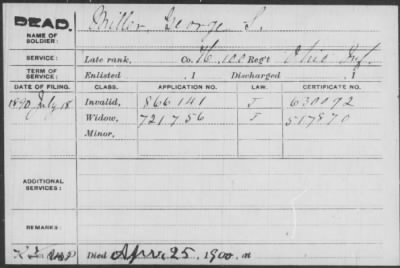 DEAD. Miller, George S.
NAME OF SOLDIER:
SERVICE: Late rank, Co. H, 100 Reg't Ohio Inf.
TERM OF SERVICE: Enlisted , 1 Discharged , 1
DATE OF FILING. CLASS. APPLICATION NO. LAW. CERTIFICATE NO.
1890 July 18 Invalid, 866 141 J 630092
Widow, 721756 J 517870
Minor,
ADDITIONAL SERVICES:
REMARKS:
Died Apr. 25, 1900, at